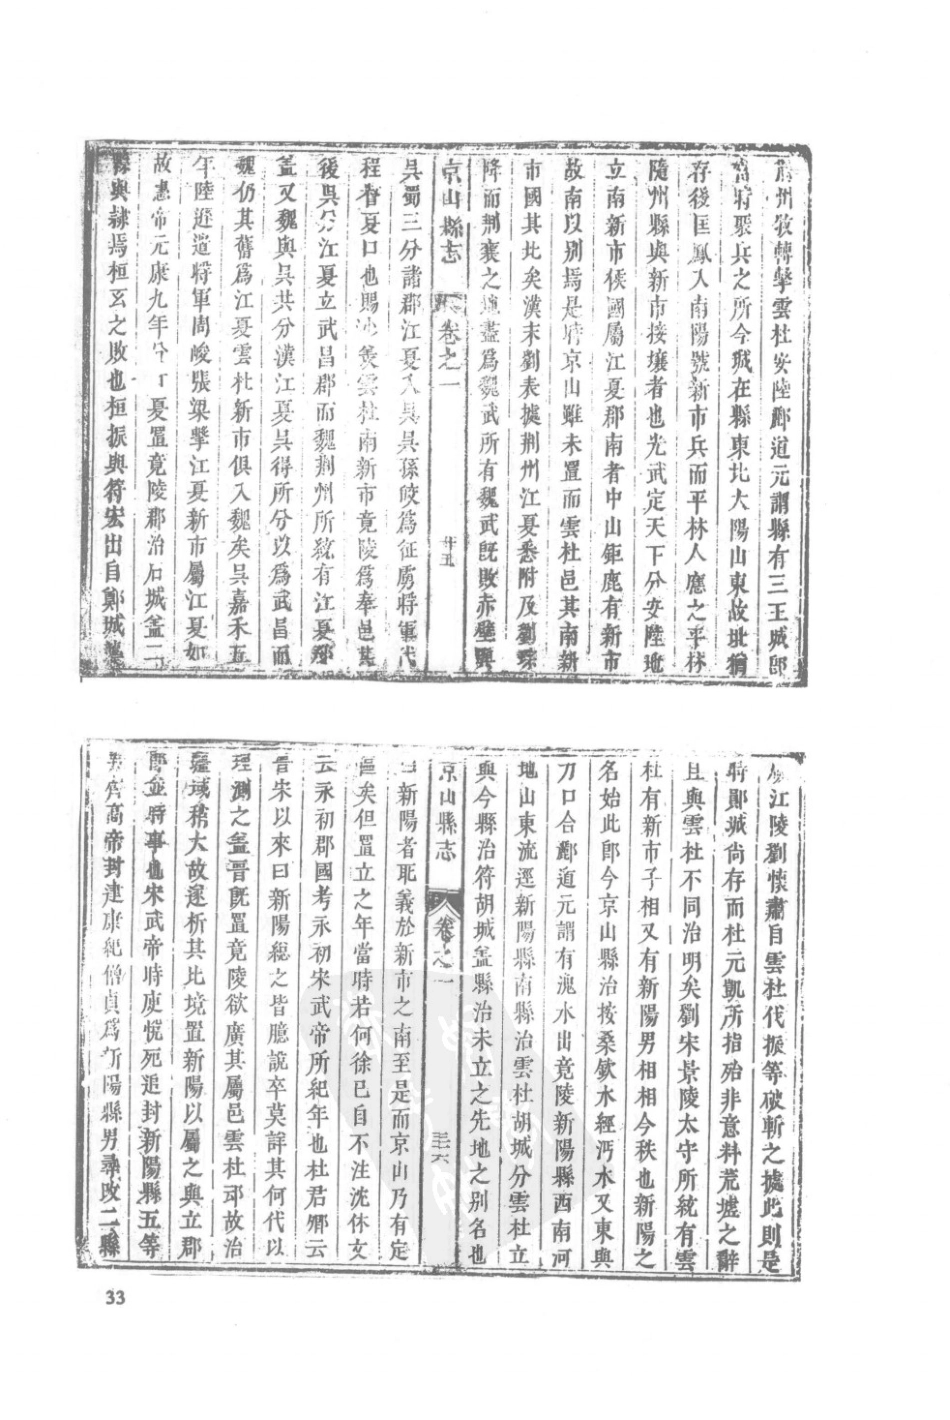 荊州牧轉擊雲杜安陸酈道元謂縣有三王城即
當時聚兵之所今城在縣東北大陽山東故址猶
存後匡鳳入南陽號新市兵而平林人應之平林
隨州縣與新市接壤者也光武定天下分安陸地
立南新市侯國屬江夏郡南者中山鉅鹿有新市
故南以别焉是時京山雖未置而雲杜邑其南新
市國其北矣漢末劉表據荆州江夏悉附及劉琮
降而荆襄之壤盡爲魏武所有魏武旣敗赤壁與
京山縣志 卷之一 廿五
吳蜀三分諸郡江夏入吳吳孫皎爲征虜將軍代
程普夏口也賜沙羨雲杜南新市竟陵爲奉邑其
後吳分江夏立武昌郡而魏荆州所統有江夏郡
盖又魏與吳共分漢江夏吳得所分以爲武昌而
魏仍其舊爲江夏雲杜新市俱入魏矣吳嘉禾五
年陸遜遣將軍周峻張梁擊江夏新市屬江夏如
故惠帝元康九年分江夏置竟陵郡治石城盖二
縣與隷焉桓玄之敗也桓振與符宏出自鄖城
江陵劉懷肅自雲杜伐振等破斬之據此則是
時鄖城尙存而杜元凱所指殆非意料荒墟之辭
且與雲杜不同治明矣劉宋景陵太守所統有雲
杜有新市子相又有新陽男相相今秩也新陽之
名始此即今京山縣治按桑欽水經沔水又東與
刀口合酈道元謂有溾水出竟陵新陽縣西南河
地山東流逕新陽縣南縣治雲杜胡城分雲杜立
與今縣治符胡城盖縣治未立之先地之别名也
京山縣志 卷之一 二十六
曰新陽者取義於新市之南至是而京山乃有定
區矣但置立之年當時若何徐已自不注沈休文
云永初郡國考永初宋武帝所紀年也杜君卿云
晋宋以來曰新陽總之皆臆說卒莫詳其何代以
理測之盖晋旣置竟陵欲廣其屬邑雲杜邔故治
疆域稍大故遂析其北境置新陽以屬之與立郡
郎並時事也宋武帝時庾悅死追封新陽縣五等
男齊高帝封建康紀僧貞爲新陽縣男尋改二縣
33